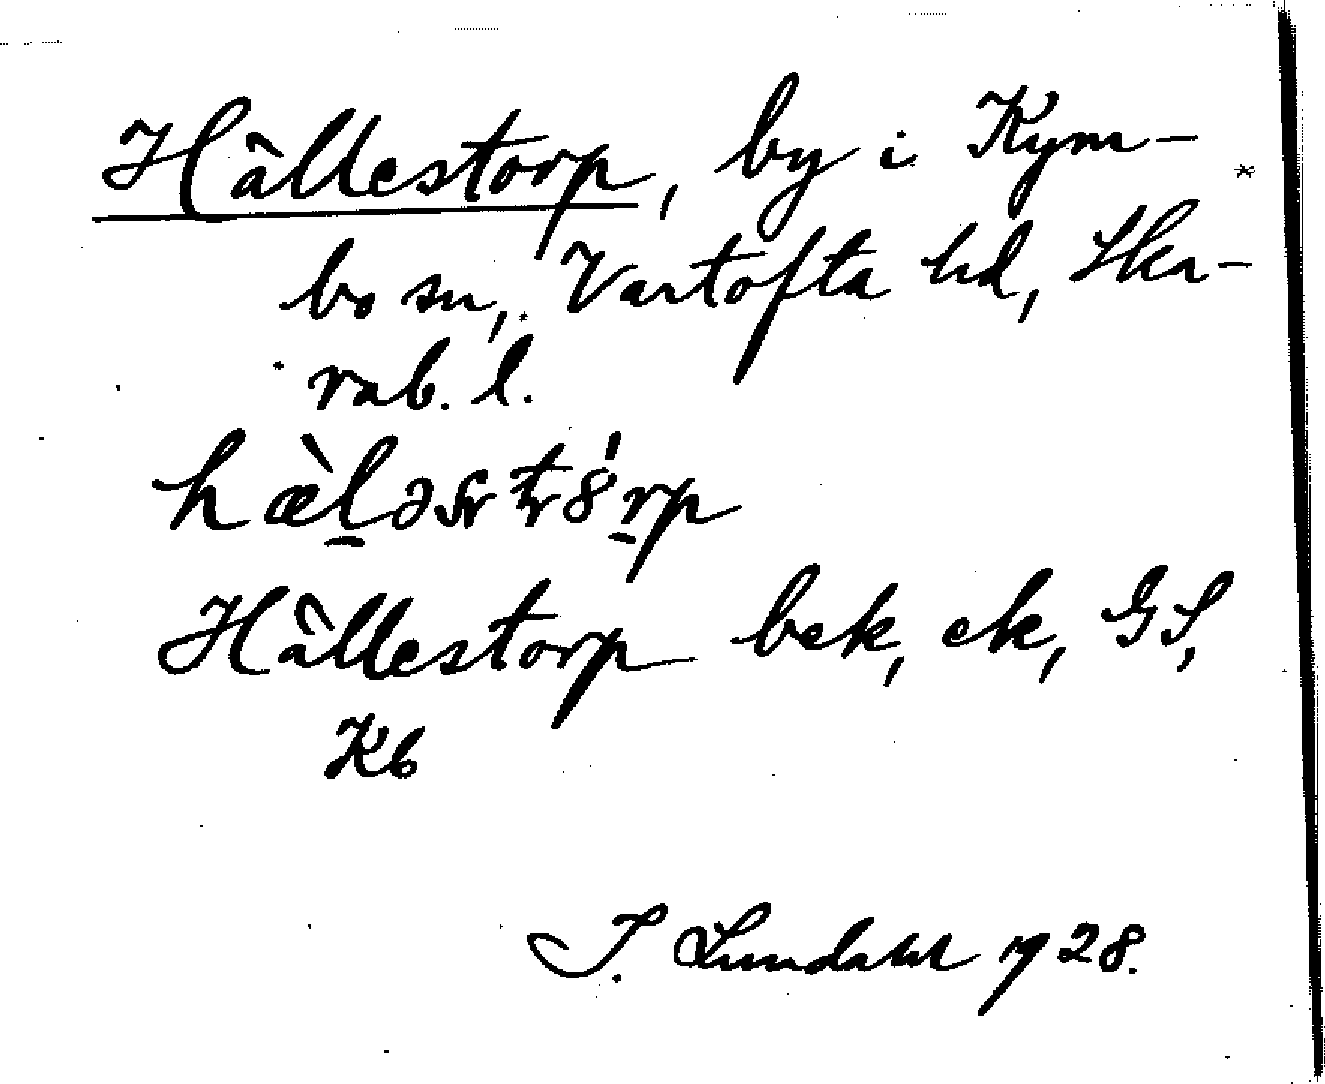 Hällestorp, by i Kym-
bo sn, Vartofta hd, Ska-
rab. l.
Hällestorp bek, ek, GS,
Kb
I. Lundahl 1928.